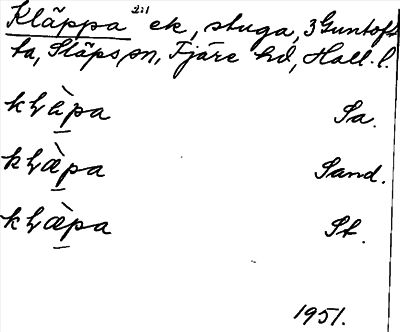 Kläppa 2:1 ek, stuga, 3 Guntoft
ta, Släps sn, Fjäre hd, Hall. l.
kḷæ̀pa Sa.
kḷæ̀pa Sand.
kḷæ̀pa St.
1951.